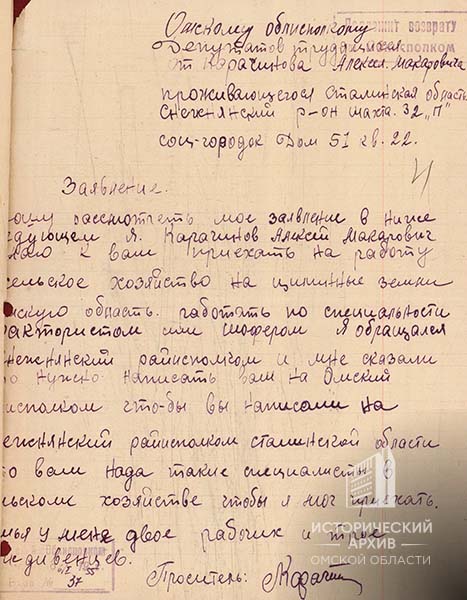 Омскому облисполкому
Подлежит возврату
Депутатов трудящихся
исполком
от Карачинова Алексея. Макаровича
проживающегося Сталинская область
Снежнянский р-он шахта. 32 „П"
соц-городок Дом 51 кв. 22.
4
Заявление.
рошу рассмотреть мое заявление в ниже
дующем Я. Карачинов Алексей Макарович
лаю к вам приехать на работу
сельское хозяйство на цилинные земли
мскую область. работать по специальности
рактористом или шофером Я обращался
нежнянский райисполком и мне сказали
о нужно написать вам на Омский
исполком что-бы вы написали на
нежнянский райисполком сталинской области
то вам нада такие специалисты в
льском хозяйстве чтобы я мог приехать.
мья у меня двое рабочих и трое
ждивенцев.
Проситель: Карачин
37
ИСТОРИЧЕСКИЙ
АРХИВ
ОМСКОЙ ОБЛАСТИ